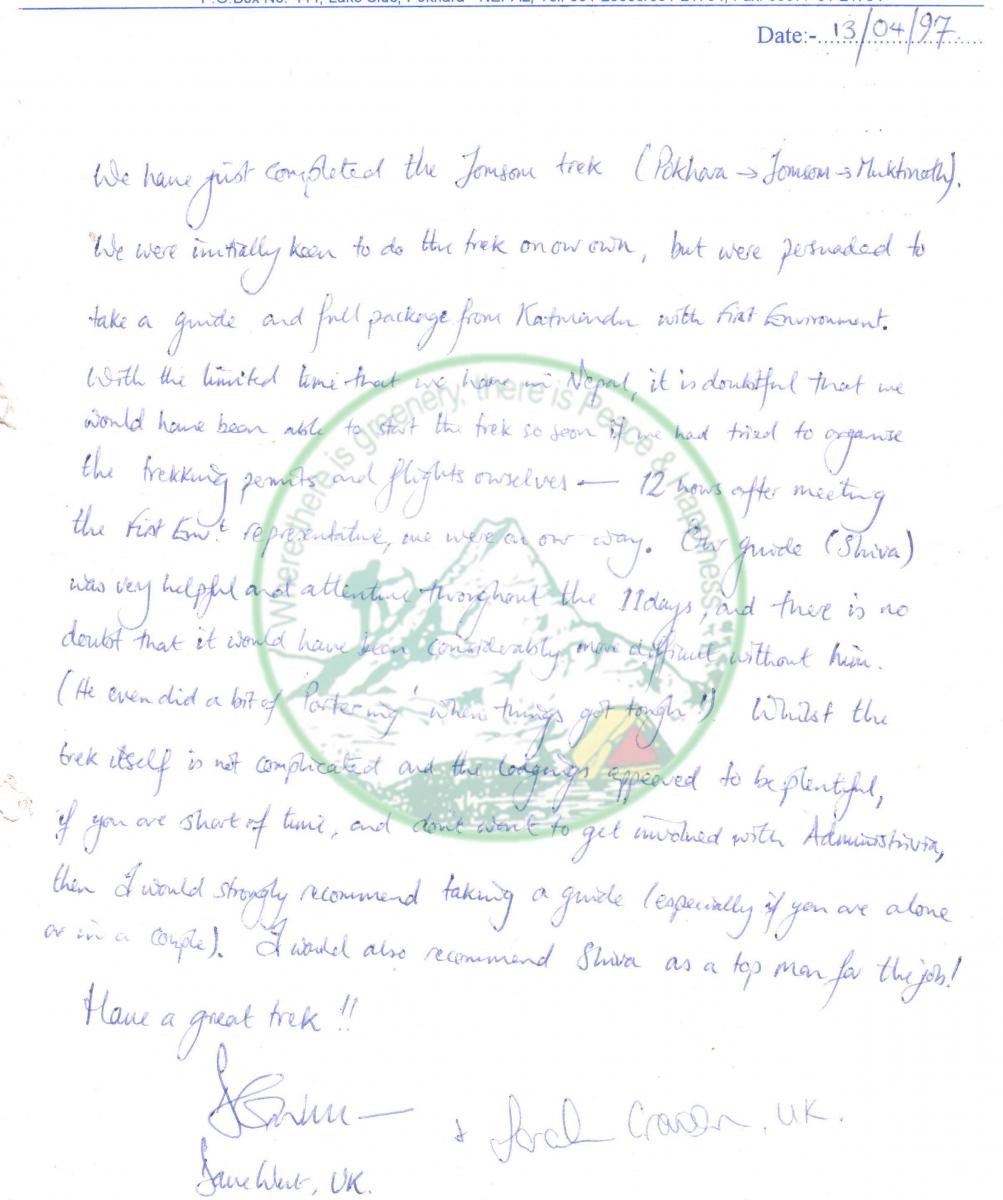 Date:- 13/04/97
We have just completed the Jomsom trek (Pokhara → Jomsom → Muktinath).
We were initially keen to do the trek on our own, but were persuaded to
take a guide and full package from Katmandu with First Environment.
With the limited time that we have in Nepal, it is doubtful that we
would have been able to start the trek so soon if we had tried to organise
the trekking permits and flights ourselves — 12 hours after meeting
the First Env.t representative, we were on our way. Our guide (Shiva)
was very helpful and attentive throughout the 11 days, and there is no
doubt that it would have been considerably more difficult without him.
(He even did a bit of 'Portering' when things got tough!) Whilst the
trek itself is not complicated and the lodgings appeared to be plentiful,
if you are short of time, and dont want to get involved with Administrivia,
then I would strongly recommend taking a guide (especially if you are alone
or in a couple). I would also recommend Shiva as a top man for the job!
Have a great trek !!
+ Sarah Craven, UK.
UK.
Where there is greenery, there is Peace & Happiness